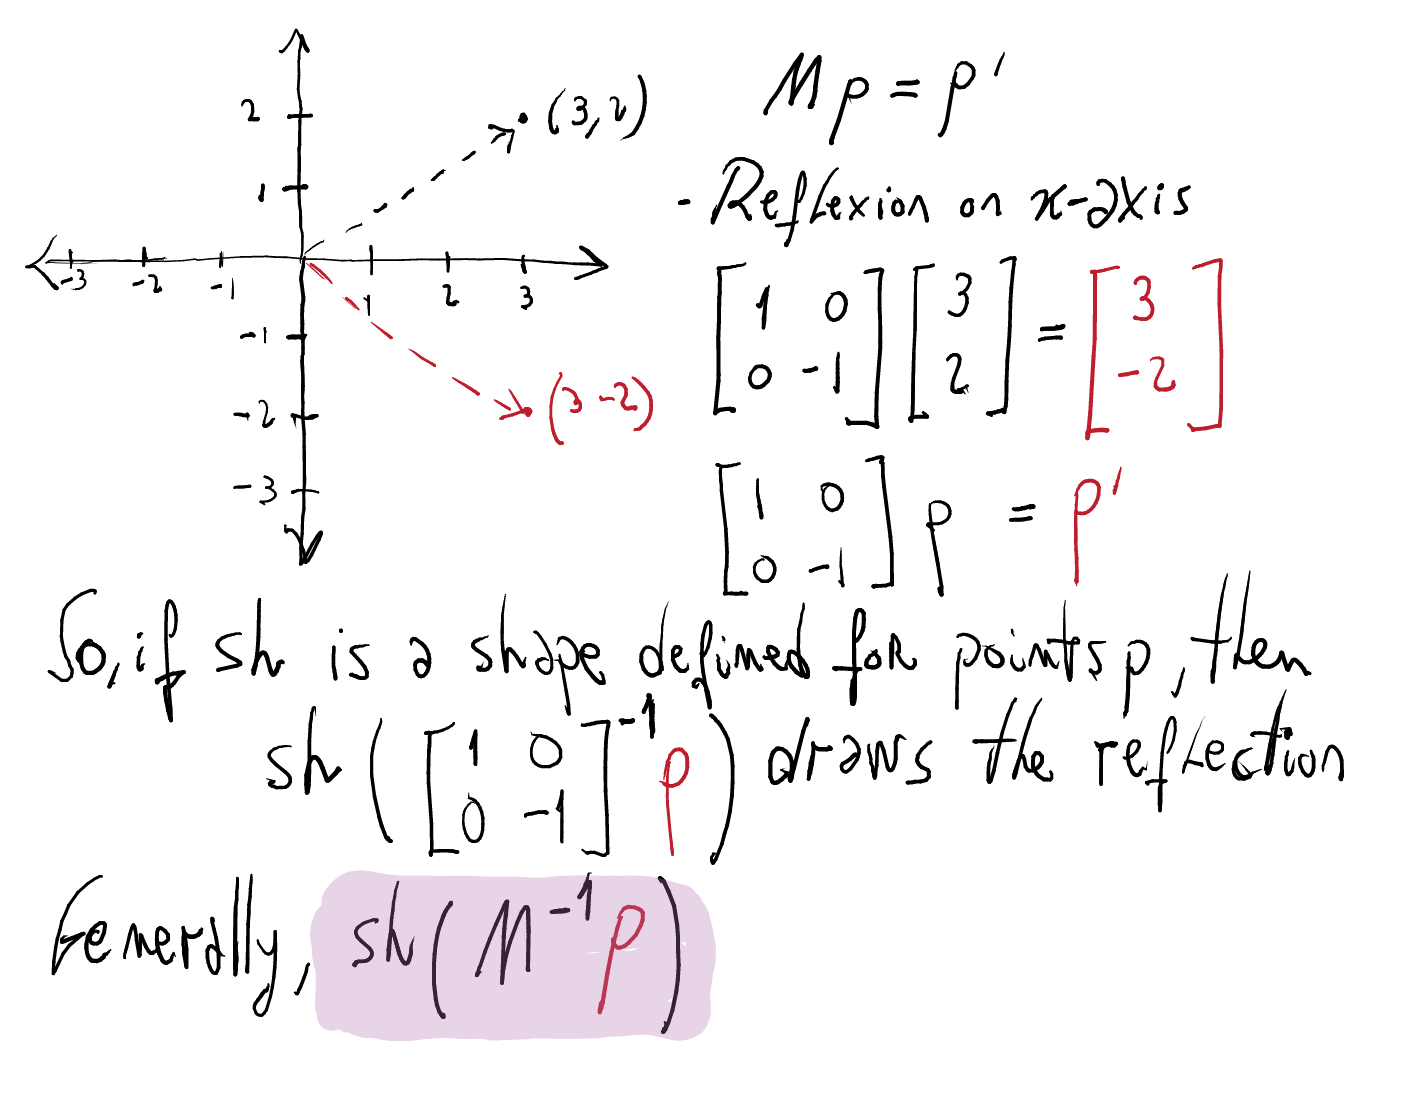 2
1
-3 -2 -1 1 2 3
-1
-2
-3
(3,2)
(3 -2)
M p = p'
- Reflexion on x-axis
[1 0
0 -1] [3
2] = [3
-2]
[1 0
0 -1] p = p'
So, if sh is a shape defined for points p, then
sh([1 0
0 -1]⁻¹ p) draws the reflection
Generally, sh(M⁻¹ p)